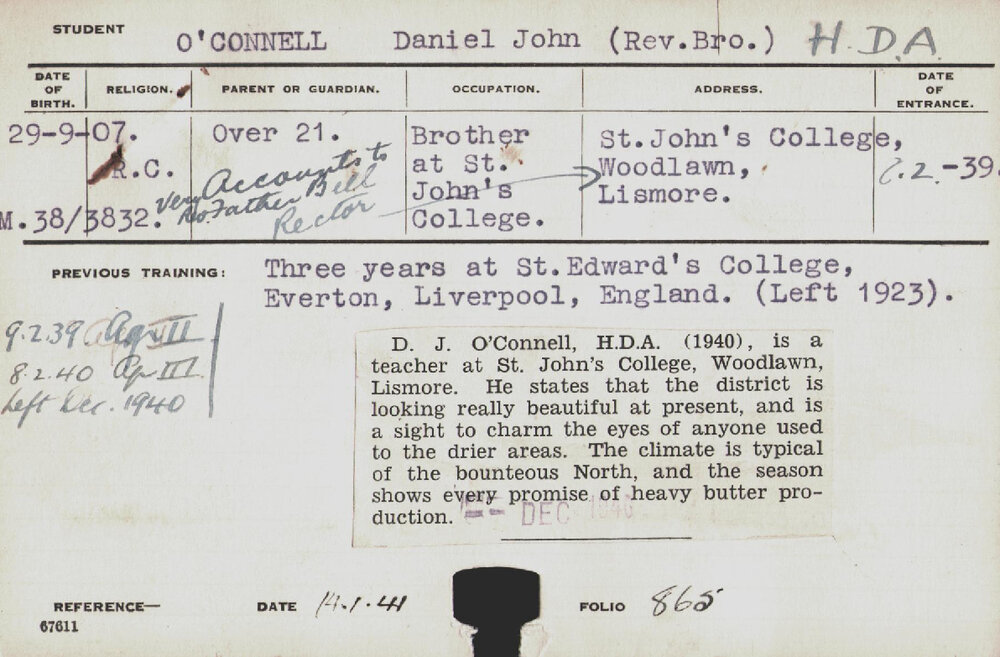 STUDENT O'CONNELL Daniel John (Rev.Bro.) H.D.A
DATE OF BIRTH. RELIGION. PARENT OR GUARDIAN. OCCUPATION. ADDRESS. DATE OF ENTRANCE.
29-9-07. Over 21. Brother St.John's College,
R.C. at St. Woodlawn, .2.-39.
John's Lismore.
M.38/3832. College.
Accounts to
Rev. Father Bell
Rector
PREVIOUS TRAINING: Three years at St.Edward's College,
Everton, Liverpool, England. (Left 1923).
9.2.39 Ag II
8.2.40 Ag III
Left Dec. 1940
D. J. O'Connell, H.D.A. (1940), is a
teacher at St. John's College, Woodlawn,
Lismore. He states that the district is
looking really beautiful at present, and is
a sight to charm the eyes of anyone used
to the drier areas. The climate is typical
of the bounteous North, and the season
shows every promise of heavy butter pro-
duction.
DEC 1946
REFERENCE— DATE 14.1.41 FOLIO 865
67611